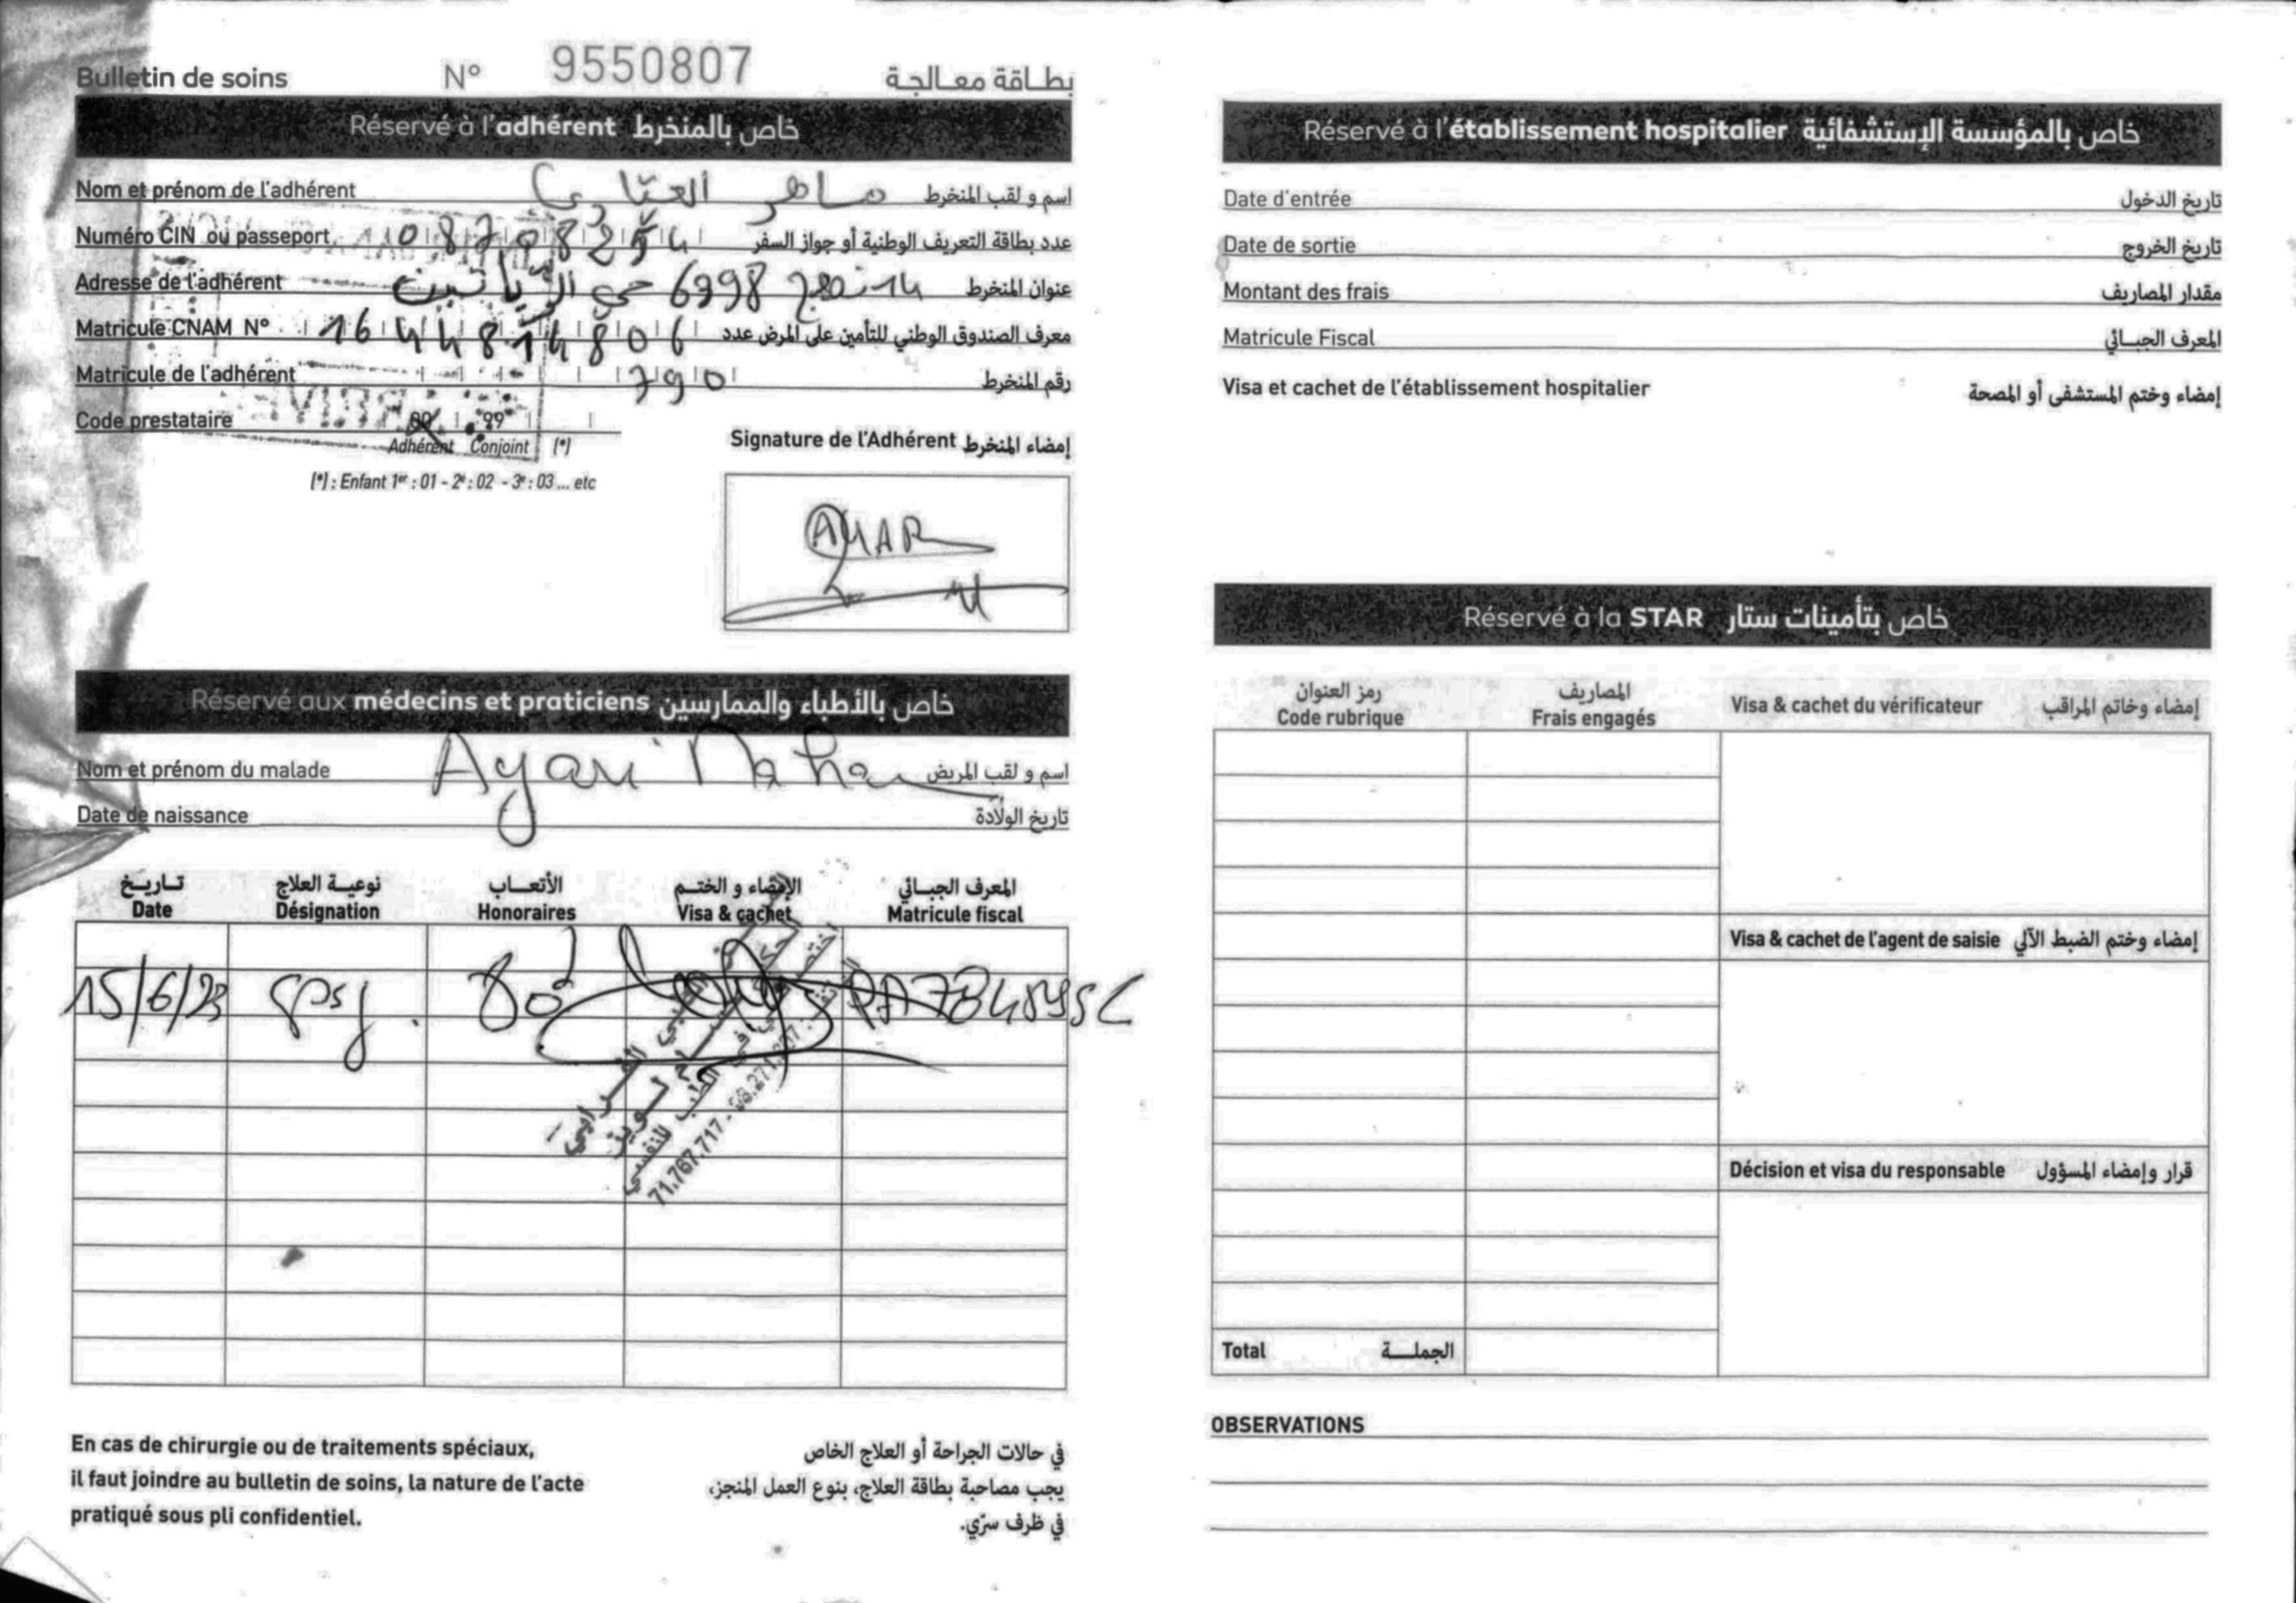 Bulletin de soins N° 9550807 بطاقة معالجة
Réservé à l'adhérent خاص بالمنخرط
Nom et prénom de l'adhérent ماهر العيّاري اسم و لقب المنخرط
Numéro CIN ou passeport عدد بطاقة التعريف الوطنية أو جواز السفر
Adresse de l'adhérent 14 نهج 6998 حي عنوان المنخرط
Matricule CNAM N° 1644814806 معرف الصندوق الوطني للتأمين على المرض عدد
Matricule de l'adhérent 790 رقم المنخرط
Code prestataire 00 99
Adhérent Conjoint (*)
(*) : Enfant 1er : 01 - 2e : 02 - 3e : 03 ... etc
Signature de l'Adhérent إمضاء المنخرط
AYARI
Réservé aux médecins et praticiens خاص بالأطباء والممارسين
Nom et prénom du malade Ayari Maher اسم و لقب المريض
Date de naissance تاريخ الولادة
تاريخ نوعية العلاج الأتعاب الإمضاء و الختم المعرف الجبائي
Date Désignation Honoraires Visa & cachet Matricule fiscal
15/6/23 80d
71.767.717
En cas de chirurgie ou de traitements spéciaux,
il faut joindre au bulletin de soins, la nature de l'acte
pratiqué sous pli confidentiel.
في حالات الجراحة أو العلاج الخاص
يجب مصاحبة بطاقة العلاج، بنوع العمل المنجز،
في ظرف سرّي.
Réservé à l'établissement hospitalier خاص بالمؤسسة الإستشفائية
Date d'entrée تاريخ الدخول
Date de sortie تاريخ الخروج
Montant des frais مقدار المصاريف
Matricule Fiscal المعرف الجبائي
Visa et cachet de l'établissement hospitalier إمضاء وختم المستشفى أو المصحة
Réservé à la STAR خاص بتأمينات ستار
رمز العنوان المصاريف
Code rubrique Frais engagés Visa & cachet du vérificateur إمضاء وخاتم المراقب
Visa & cachet de l'agent de saisie إمضاء وختم الضبط الآلي
Décision et visa du responsable قرار وإمضاء المسؤول
Total الجملة
OBSERVATIONS